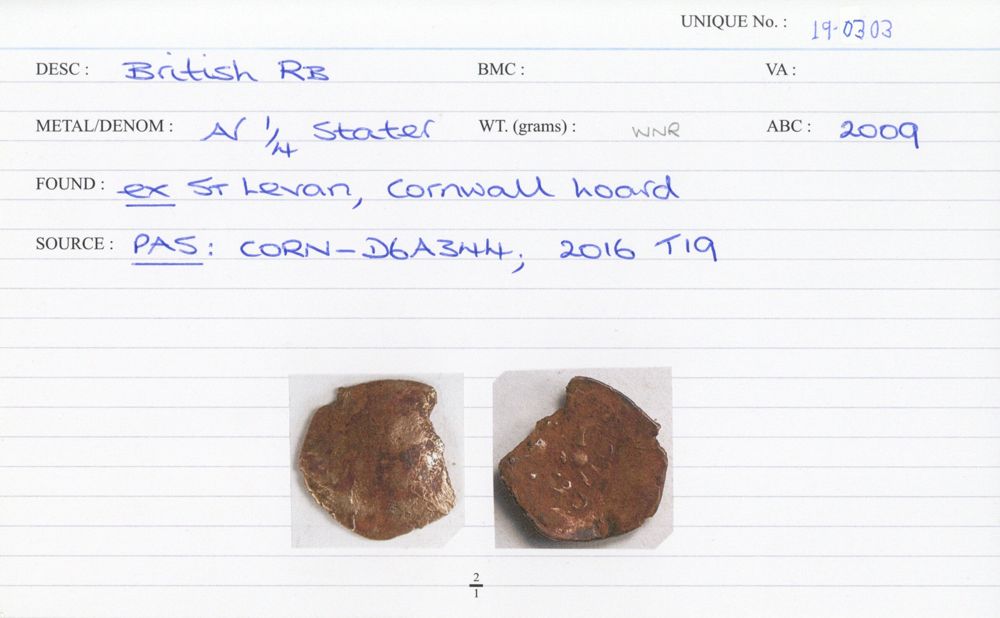 UNIQUE No. : 19-0303
DESC : British RB BMC : VA :
METAL/DENOM : AV 1/4 Stater WT. (grams) : WNR ABC : 2009
FOUND : ex St Levan, Cornwall hoard
SOURCE : PAS: CORN-D6A344; 2016 T19
2
1